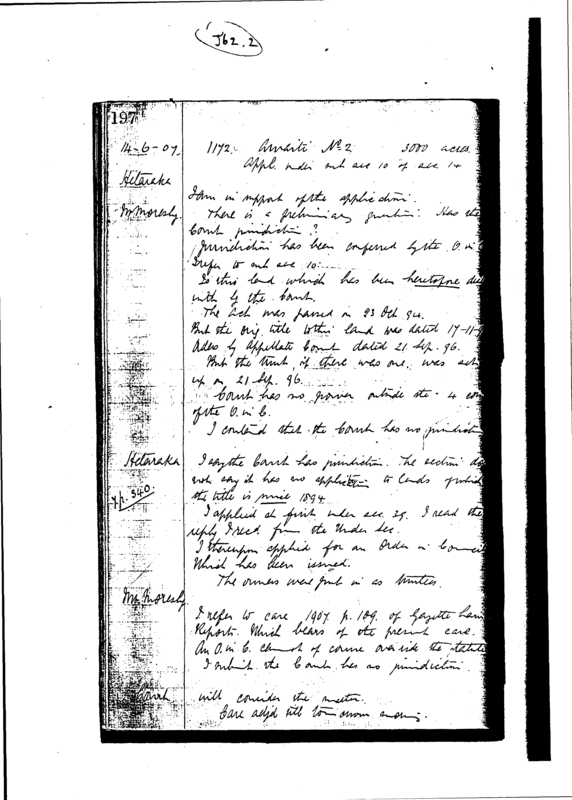 J62.2
197
14-6-07. 1172. Awaiti No 2 3000 acres
Appl. under sub sec 10 of sec 14
Hetaraka
I am in support of the application.
Mr Moresby. There is a preliminary question. Has the
Court jurisdiction?
Jurisdiction has been conferred by the O. in C
I refer to sub sec 10:
Is this land which has been heretofore
with by the Court.
The Act was passed in 23 Oct 94.
But the orig. title to this land was dated 17-11-
Order by Appellate Court dated 21 Sep. 96.
But the trust, if there was one, was
up on 21 Sep. 96.
Court has no power outside the
of the O. in C.
I contend that the Court has no
Hetaraka I say the Court has jurisdiction. The section
not say it has no application to lands
p. 340. the title is since 1894.
I applied at first under sec. 29. I read the
reply I recd from the Under Sec.
I thereupon applied for an Order in Council
Which has been issued.
The owners were put in as trustees.
Mr Moresby
I refer to case 1907 p. 189. of Gazette Law
Reports. Which bears of the present case.
An O. in C. cannot of course override the statute
I submit the Court has no jurisdiction.
Court will consider the matter.
Case adjd till tomorrow